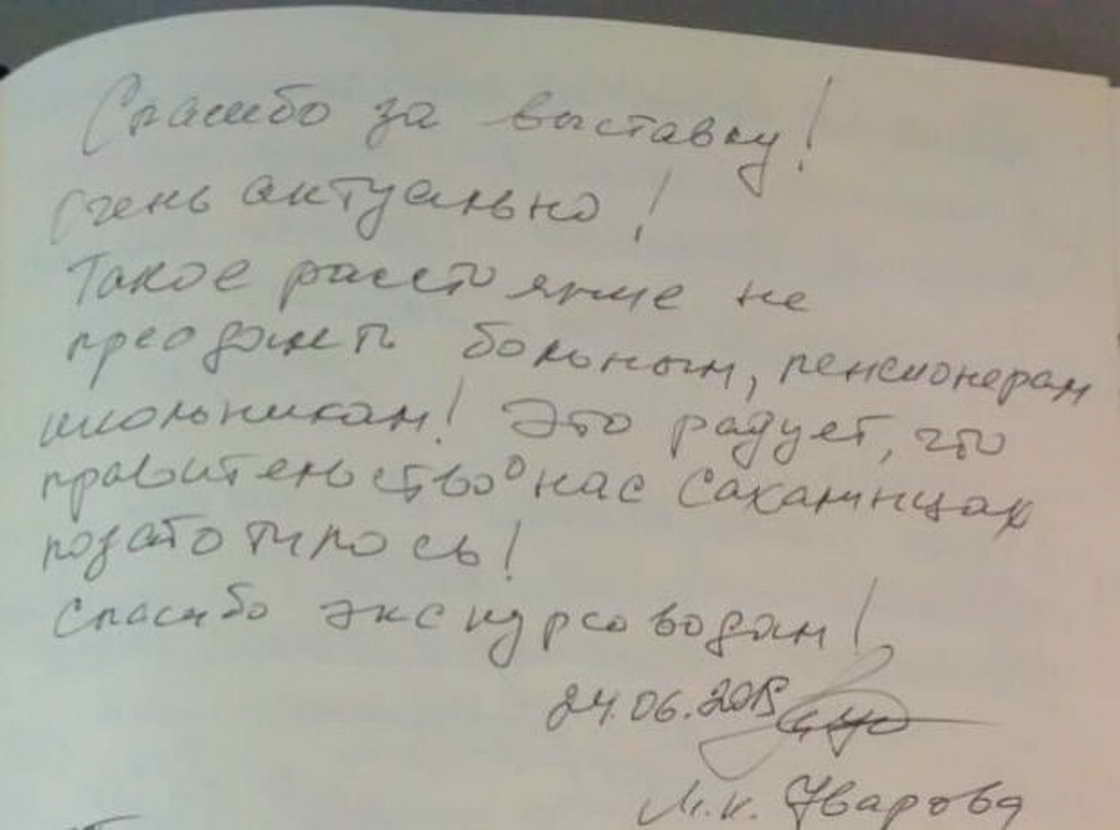 Спасибо за выставку!
Очень актуально!
Такое расстояние не
преодолеть больным, пенсионерам
школьникам! Это радует, что
правительство о нас Сахалинцах
позаботилось!
Спасибо экскурсоводам!
24.06.2015
Л.К. Уварова